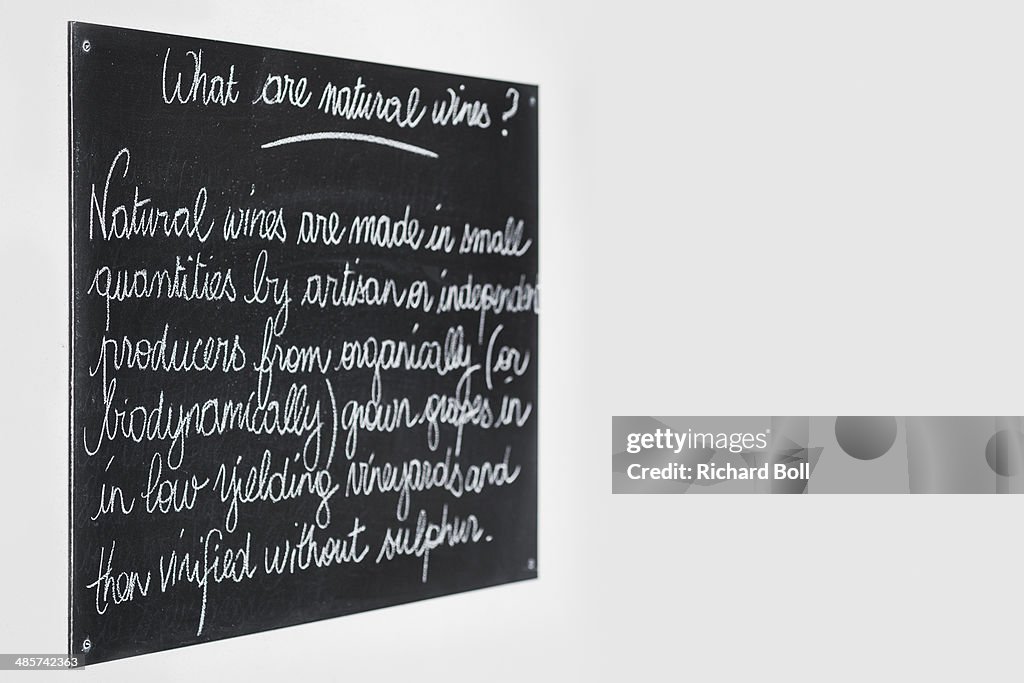 What are natural wines ?
Natural wines are made in small
quantities by artisan or independent
producers from organically (or
biodynamically) grown grapes in
in low yielding vineyards and
then vinified without sulphur.
gettyimages®
Credit: Richard Boll
485742363